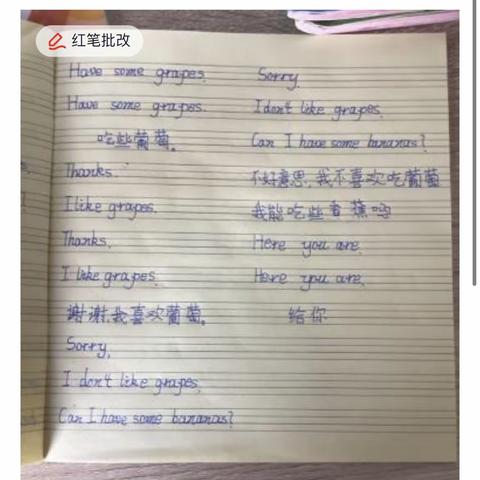 红笔批改
Have some grapes.
Have some grapes.
吃些葡萄。
Thanks.
I like grapes.
Thanks.
I like grapes.
谢谢,我喜欢葡萄。
Sorry,
I don't like grapes.
Can I have some bananas?
Sorry.
I don't like grapes.
Can I have some bananas?
不好意思,我不喜欢吃葡萄
我能吃些香蕉吗
Here you are.
Here you are.
给你